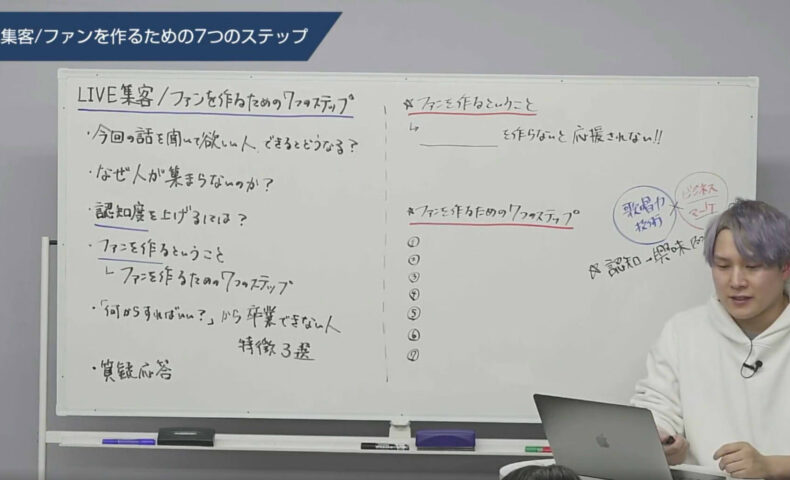 集客/ファンを作るための7つのステップ
LIVE集客/ファンを作るための7つのステップ
・今回の話を聞いて欲しい人、できるとどうなる?
・なぜ人が集まらないのか?
・認知度を上げるには?
・ファンを作るということ
└ ファンを作るための7つのステップ
・「何からすればいい?」から卒業できない人
特徴3選
・質疑応答
☆ファンを作るということ
└ ______を作らないと応援されない!!
☆ファンを作るための7つのステップ
①
②
③
④
⑤
⑥
⑦
歌唱力
技術
×
ビジネス
マーケ
☆認知→興味